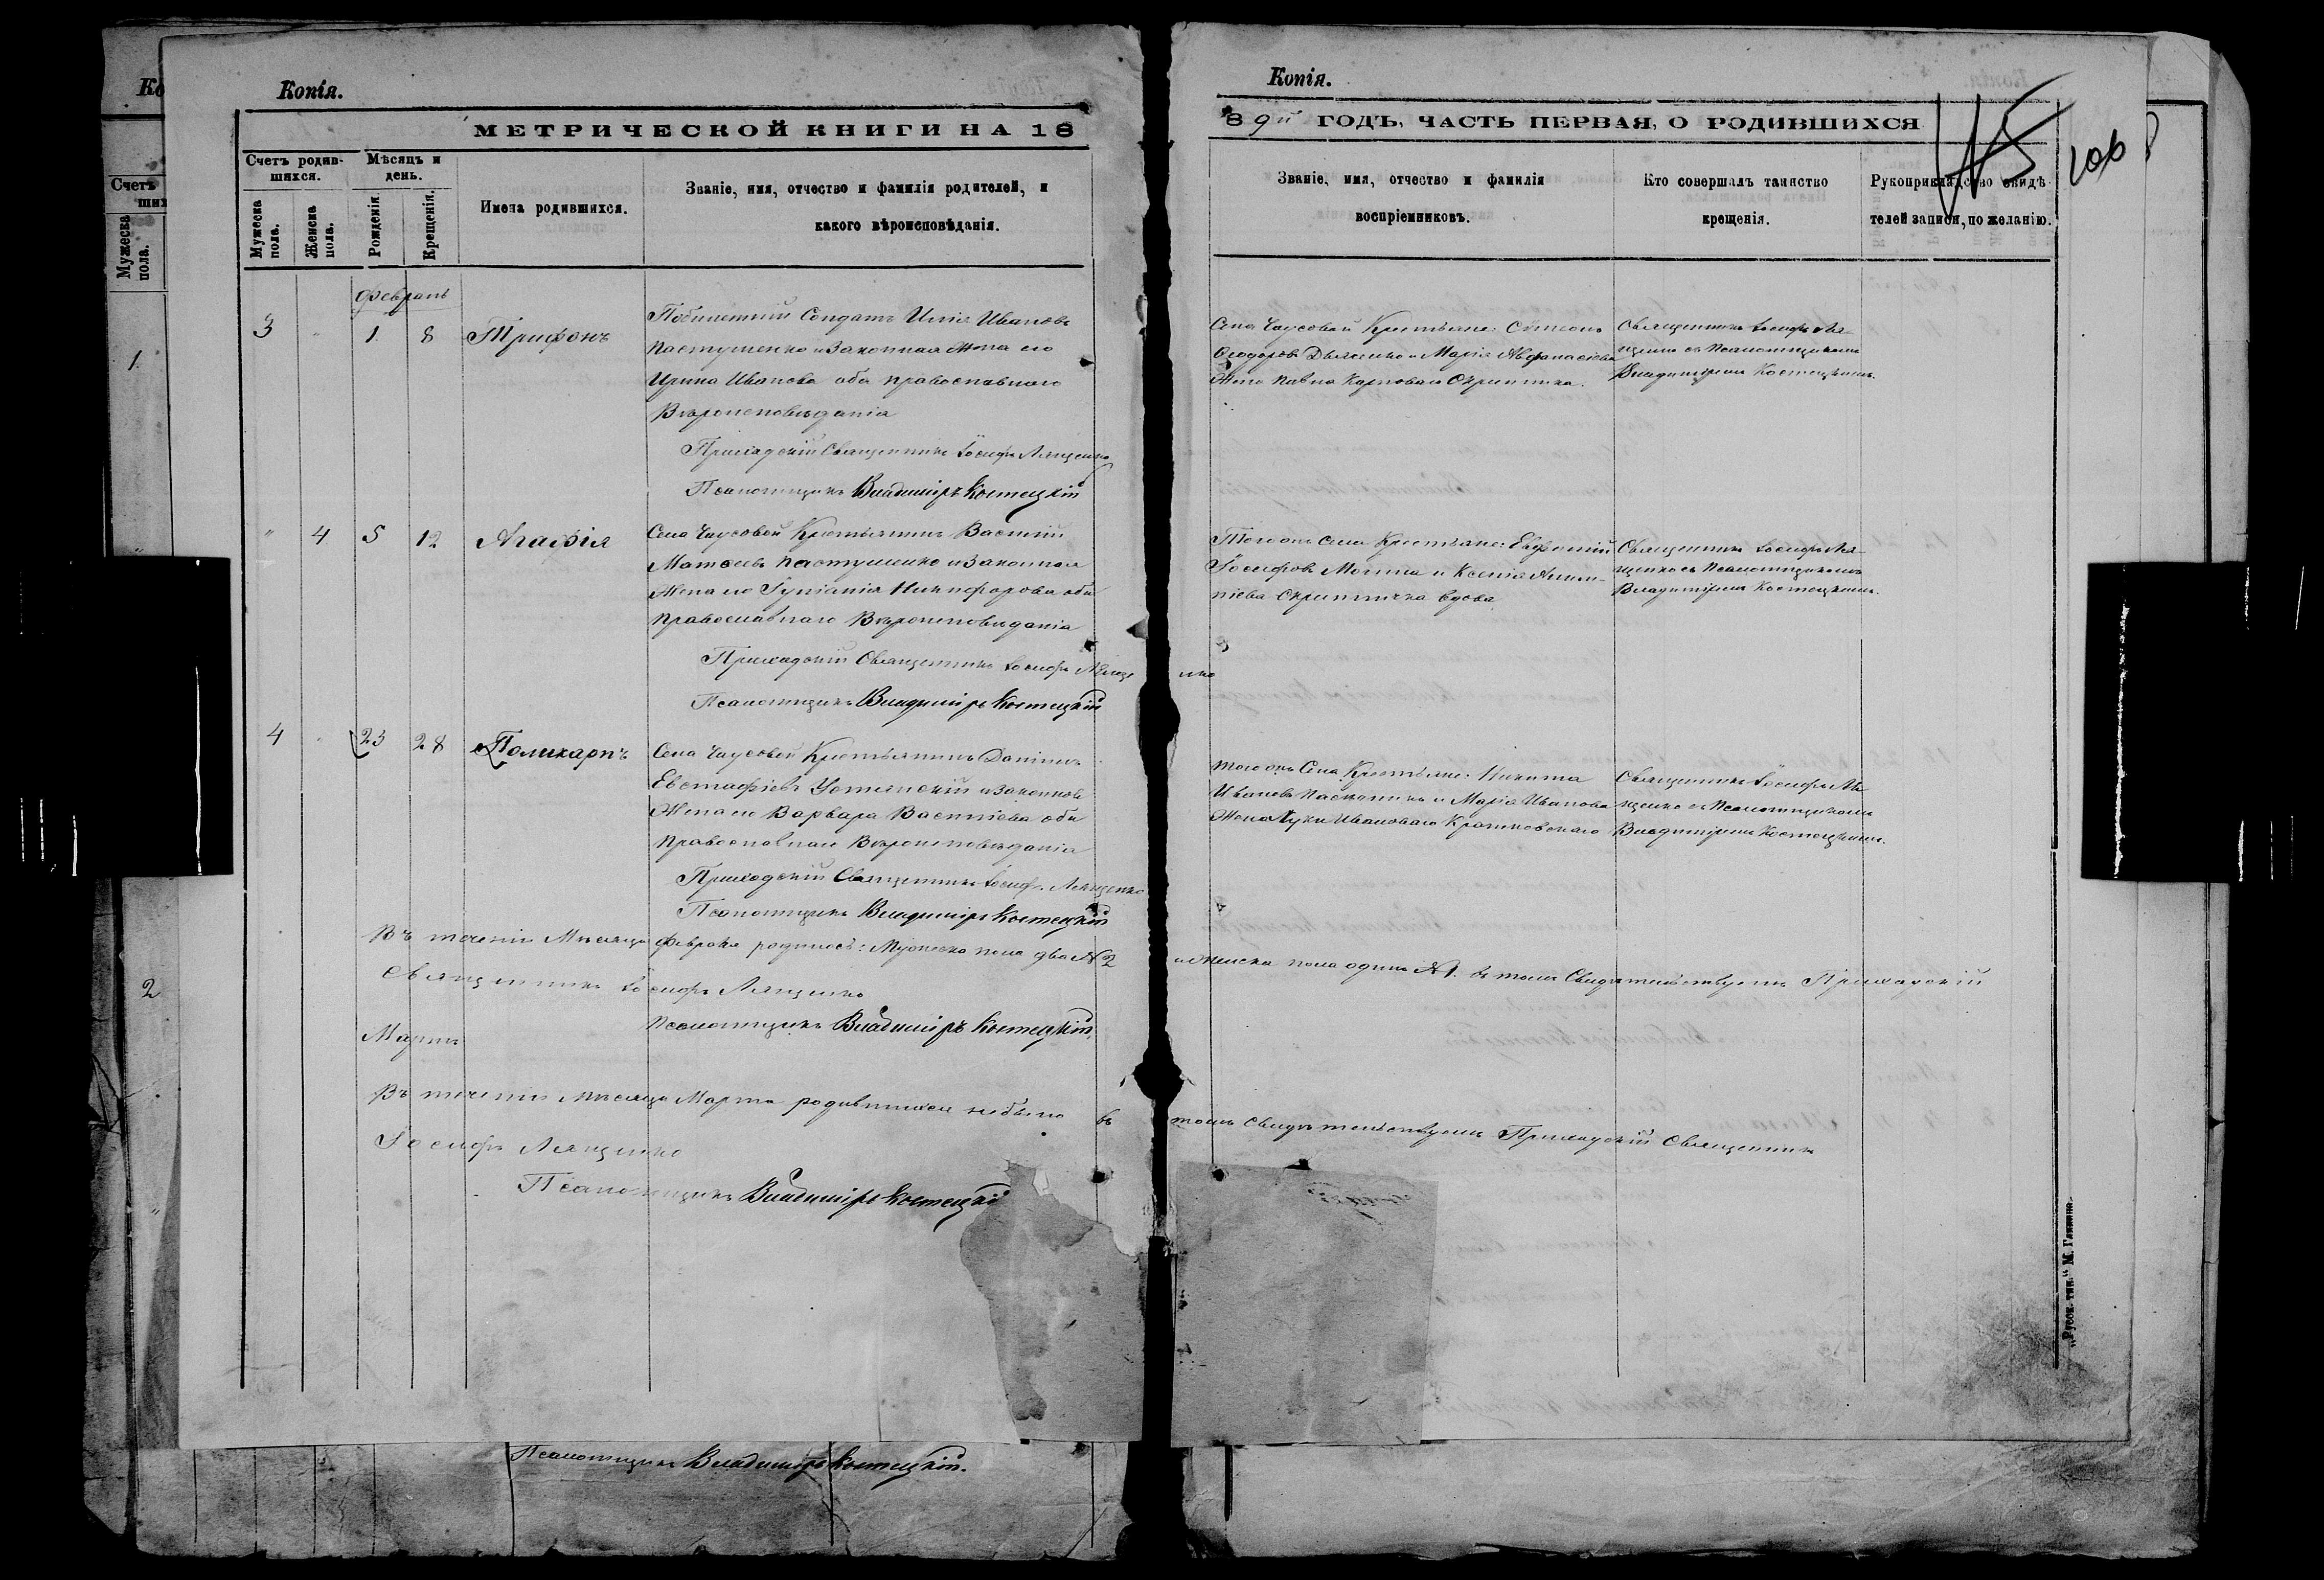 Копія.
МЕТРИЧЕСКОЙ КНИГИ НА 18
Счетъ родив-
шихся.
Мѣсяцъ и
день.
Мужеска
пола.
Женска
пола.
Рожденія.
Крещенія.
Имена родившихся.
Званіе, имя, отчество и фамилія родителей, и
какого вѣроисповѣданія.
Февраль
3 " 1 8 Трифонъ
Солдатъ Илія Ивановъ
Пастушенко и Законная Жена его
Ирина Иванова оба православнаго
Вѣроисповѣданія
Приходскій Священникъ Іосифъ Лященко
Псаломщикъ Владиміръ Костецкій
" 4 5 12 Агафія
Села Чаусовой Крестьянинъ Василій
Матѳеевъ Пастушенко и Законная
Жена его Іуліанія Никифорова оба
Православнаго Вѣроисповѣданія
Приходскій Священникъ Іосифъ Лященко
Псаломщикъ Владиміръ Костецкій
4 " 23 28 Поликарпъ
Села Чаусовой Крестьянинъ Даніилъ
Евстафіевъ Устянскій и Законная
Жена его Варвара Василіева оба
Православнаго Вѣроисповѣданія
Приходскій Священникъ Іосифъ Лященко
Псаломщикъ Владиміръ Костецкій
Въ теченіи Мѣсяца Февраля родилось: Мужеска пола два №2
Священникъ Іосифъ Лященко
Псаломщикъ Владиміръ Костецкій.
Мартъ
Въ теченіи Мѣсяца Марта родившихся небыло въ
Іосифъ Лященко
Псаломщикъ Владиміръ Костецкій
Псаломщикъ Владиміръ Костецкій.
Копія.
89й ГОДЪ, ЧАСТЬ ПЕРВАЯ, О РОДИВШИХСЯ
Званіе, имя, отчество и фамилія
воспріемниковъ.
Кто совершалъ таинство
крещенія.
Рукоприкладство свидѣ
телей записи, по желанію.
Села Чаусовой Крестьяне: Симеонъ
Ѳеодоровъ и Марія Афанасіева
Жена Павла Карпова Скрипника.
Священникъ Іосифъ Ля-
щенко съ Псаломщикомъ
Владиміромъ Костецкимъ.
Тогожъ Села Крестьяне: Евфимій
Іосифовъ и Ксенія
Скрипничка вдова
Священникъ Іосифъ Ля-
щенко съ Псаломщикомъ
Владиміромъ Костецкимъ.
Тогожъ Села Крестьяне: Никита
Ивановъ и Марія Иванова
Жена Луки Иванова
Священникъ Іосифъ Ля
щенко съ Псаломщикомъ
Владиміромъ Костецкимъ.
и Женска пола одинъ №1. въ томъ Свидѣтельствуетъ Приходскій
томъ Свидѣтельствуетъ Приходскій Священникъ
„Русск. тип." М. Гликмо.